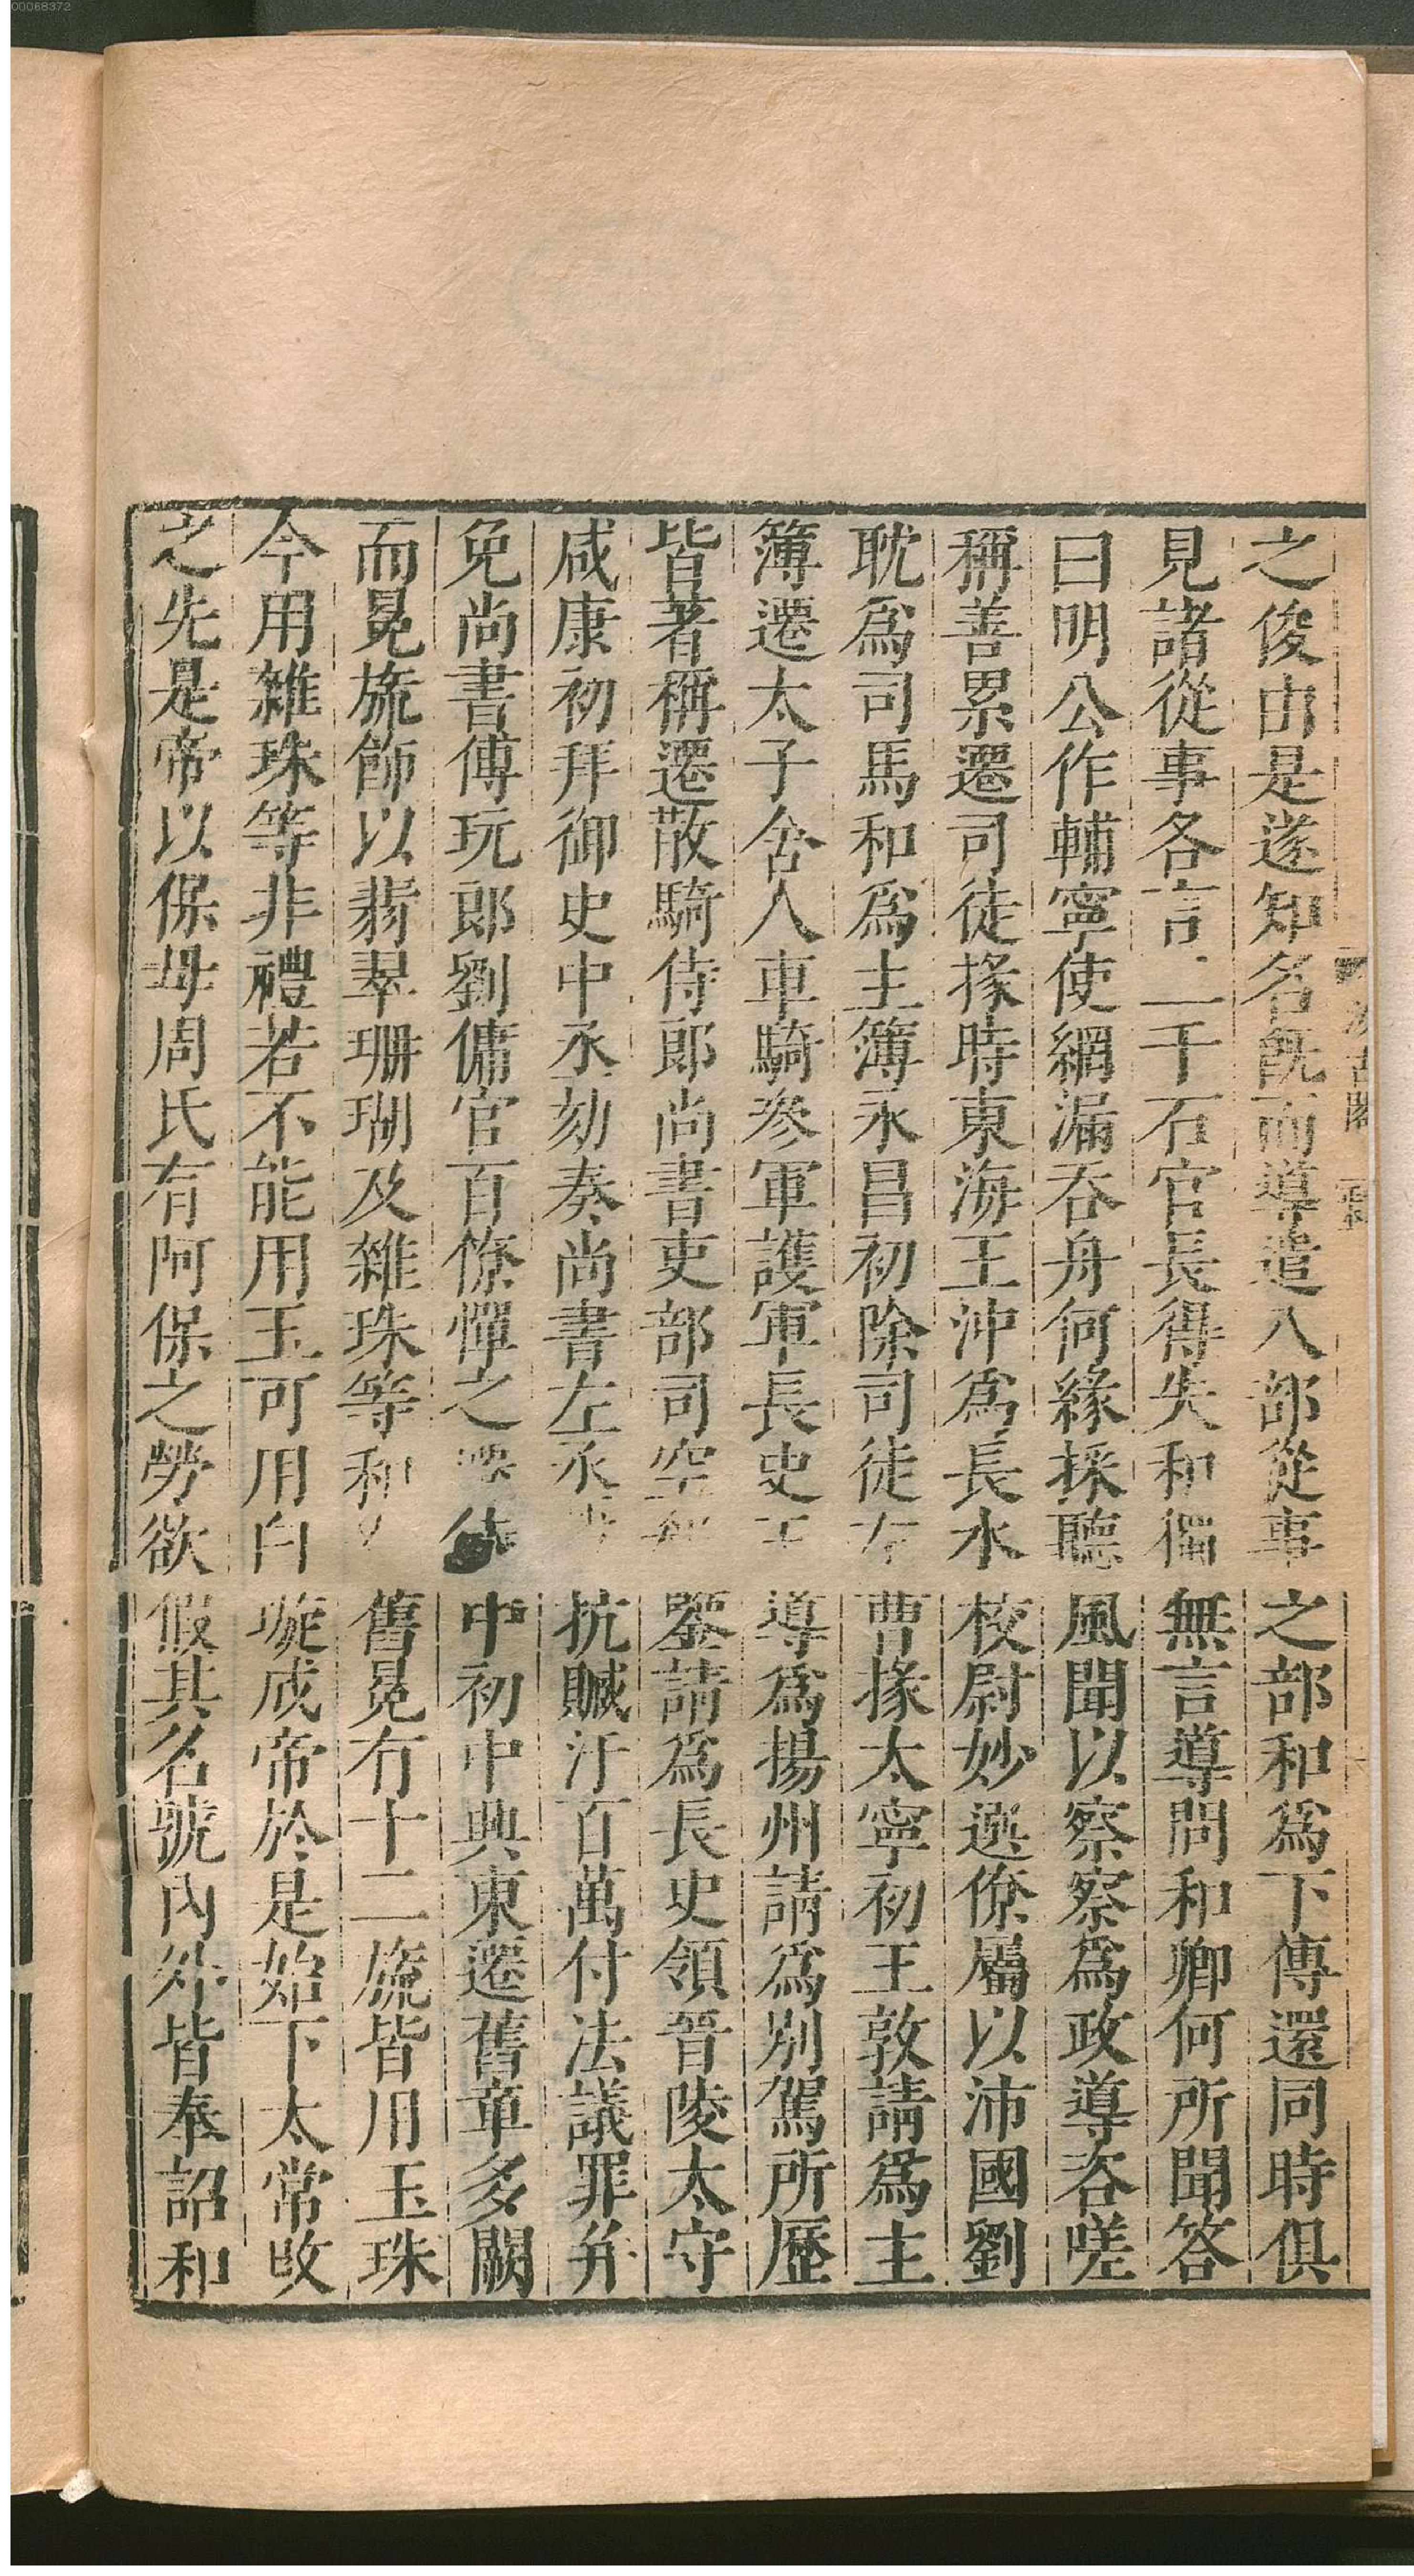 之俊由是遂知名旣而導遣八部從事之部和爲下傳還同時俱
見諸從事各言二千石官長得失和獨無言導問和卿何所聞答
曰明公作輔寧使網漏吞舟何緣採聽風聞以察察爲政導咨嗟
稱善累遷司徒掾時東海王沖爲長水校尉妙選僚屬以沛國劉
耽爲司馬和爲主簿永昌初除司徒左曹掾太寧初王敦請爲主
簿遷太子舍人車騎參軍護軍長史王導爲揚州請爲別駕所歷
皆著稱遷散騎侍郎尚書吏部司空鑒請爲長史領晉陵太守
咸康初拜御史中丞劾奏尚書左丞抗贓汙百萬付法議罪幷
免尚書傅玩郎劉傭官百僚憚之遷侍中初中興東遷舊章多闕
而冕旒飾以翡翠珊瑚及雜珠等和舊冕有十二旒皆用玉珠
今用雜珠等非禮若不能用玉可用白璇成帝於是始下太常改
之先是帝以保母周氏有阿保之勞欲假其名號內外皆奉詔和
汲古閣
00068372